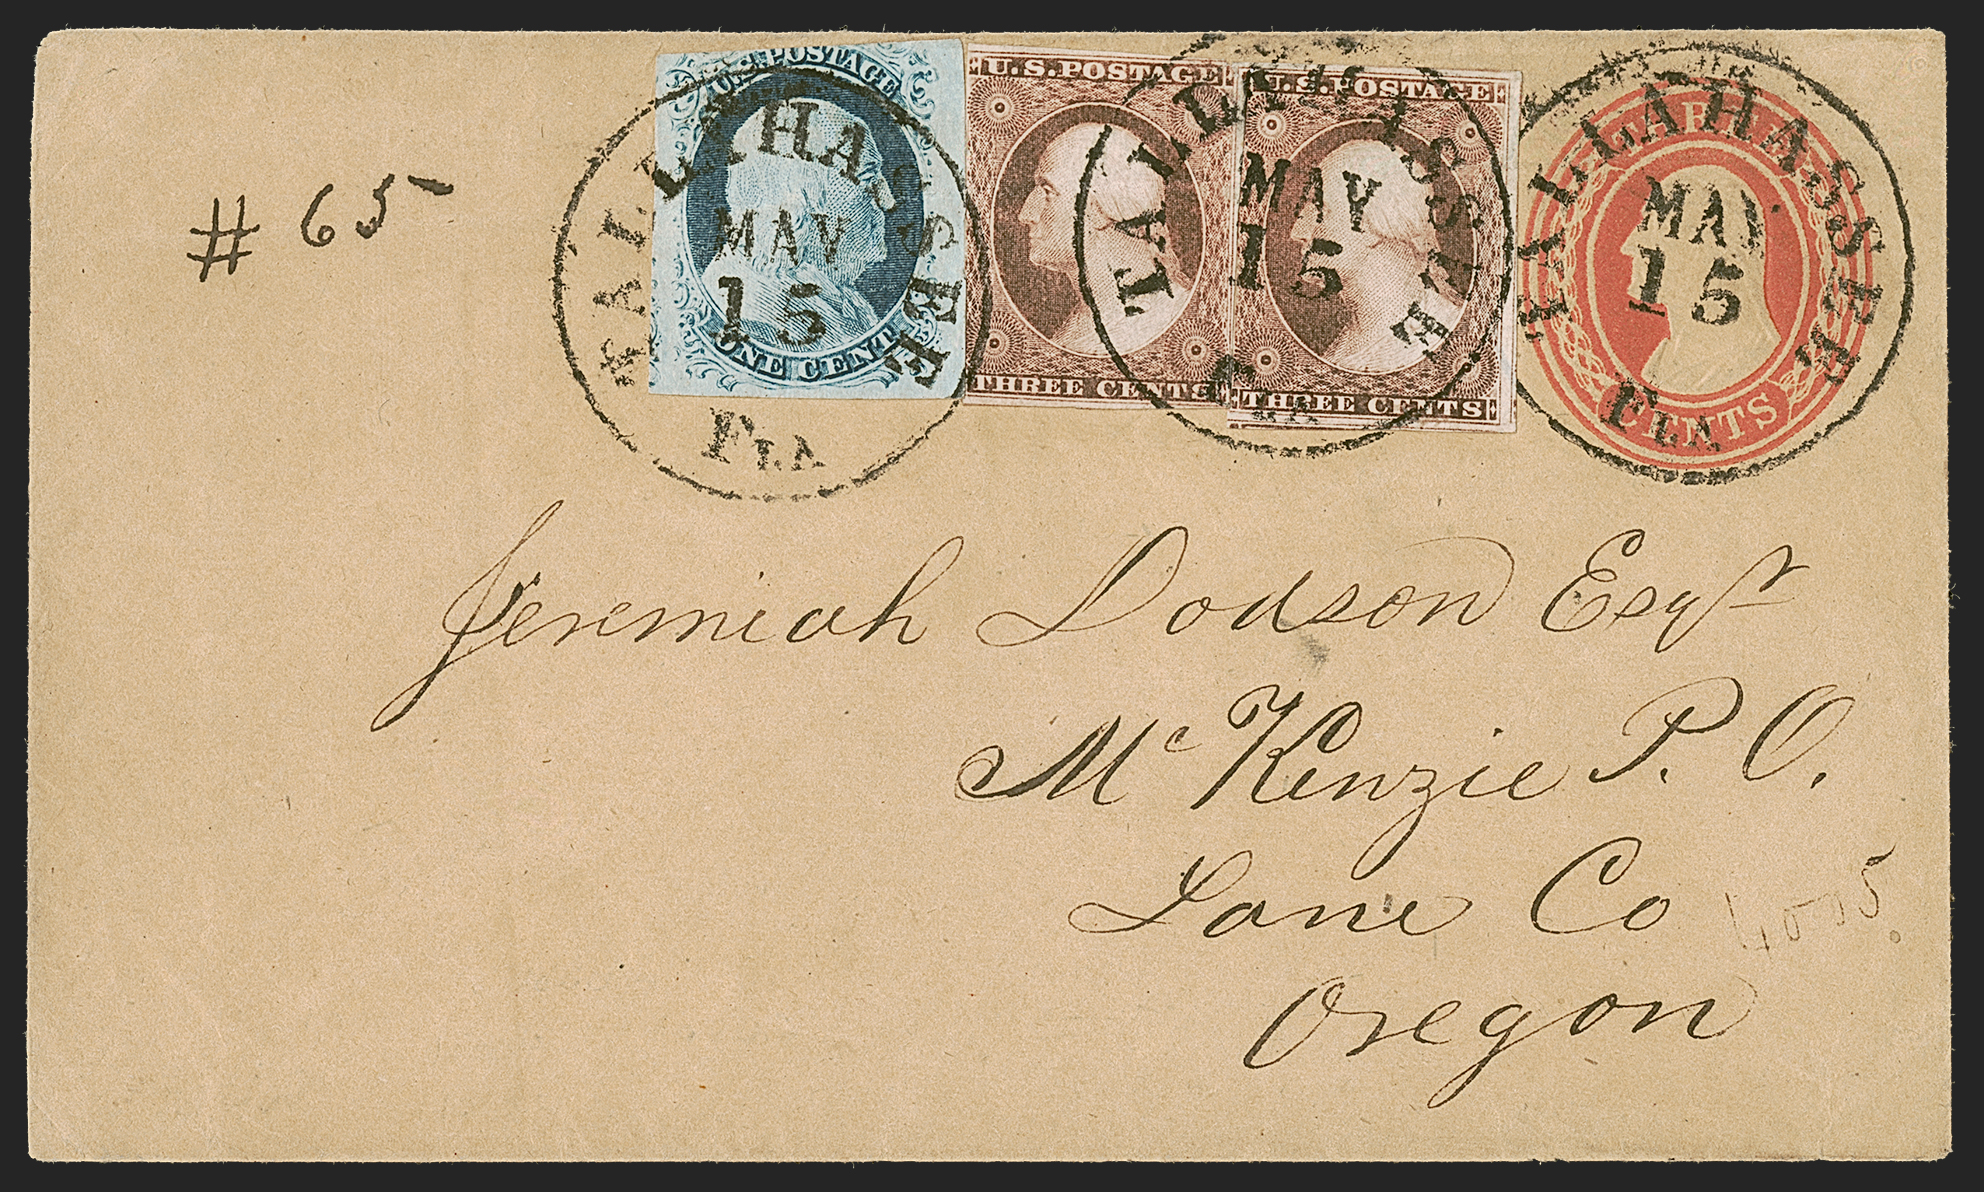 U.S. POSTAGE
ONE CENT
U.S. POSTAGE
THREE CENTS
U.S. POSTAGE
THREE CENTS
CENTS
TALLAHASSEE
MAY
15
FLA
TALLAHASSEE
MAY
15
FLA
TALLAHASSEE
MAY
15
FLA
# 65
Jeremiah Dodson Esqr
McKenzie P. O.
Lane Co
Oregon